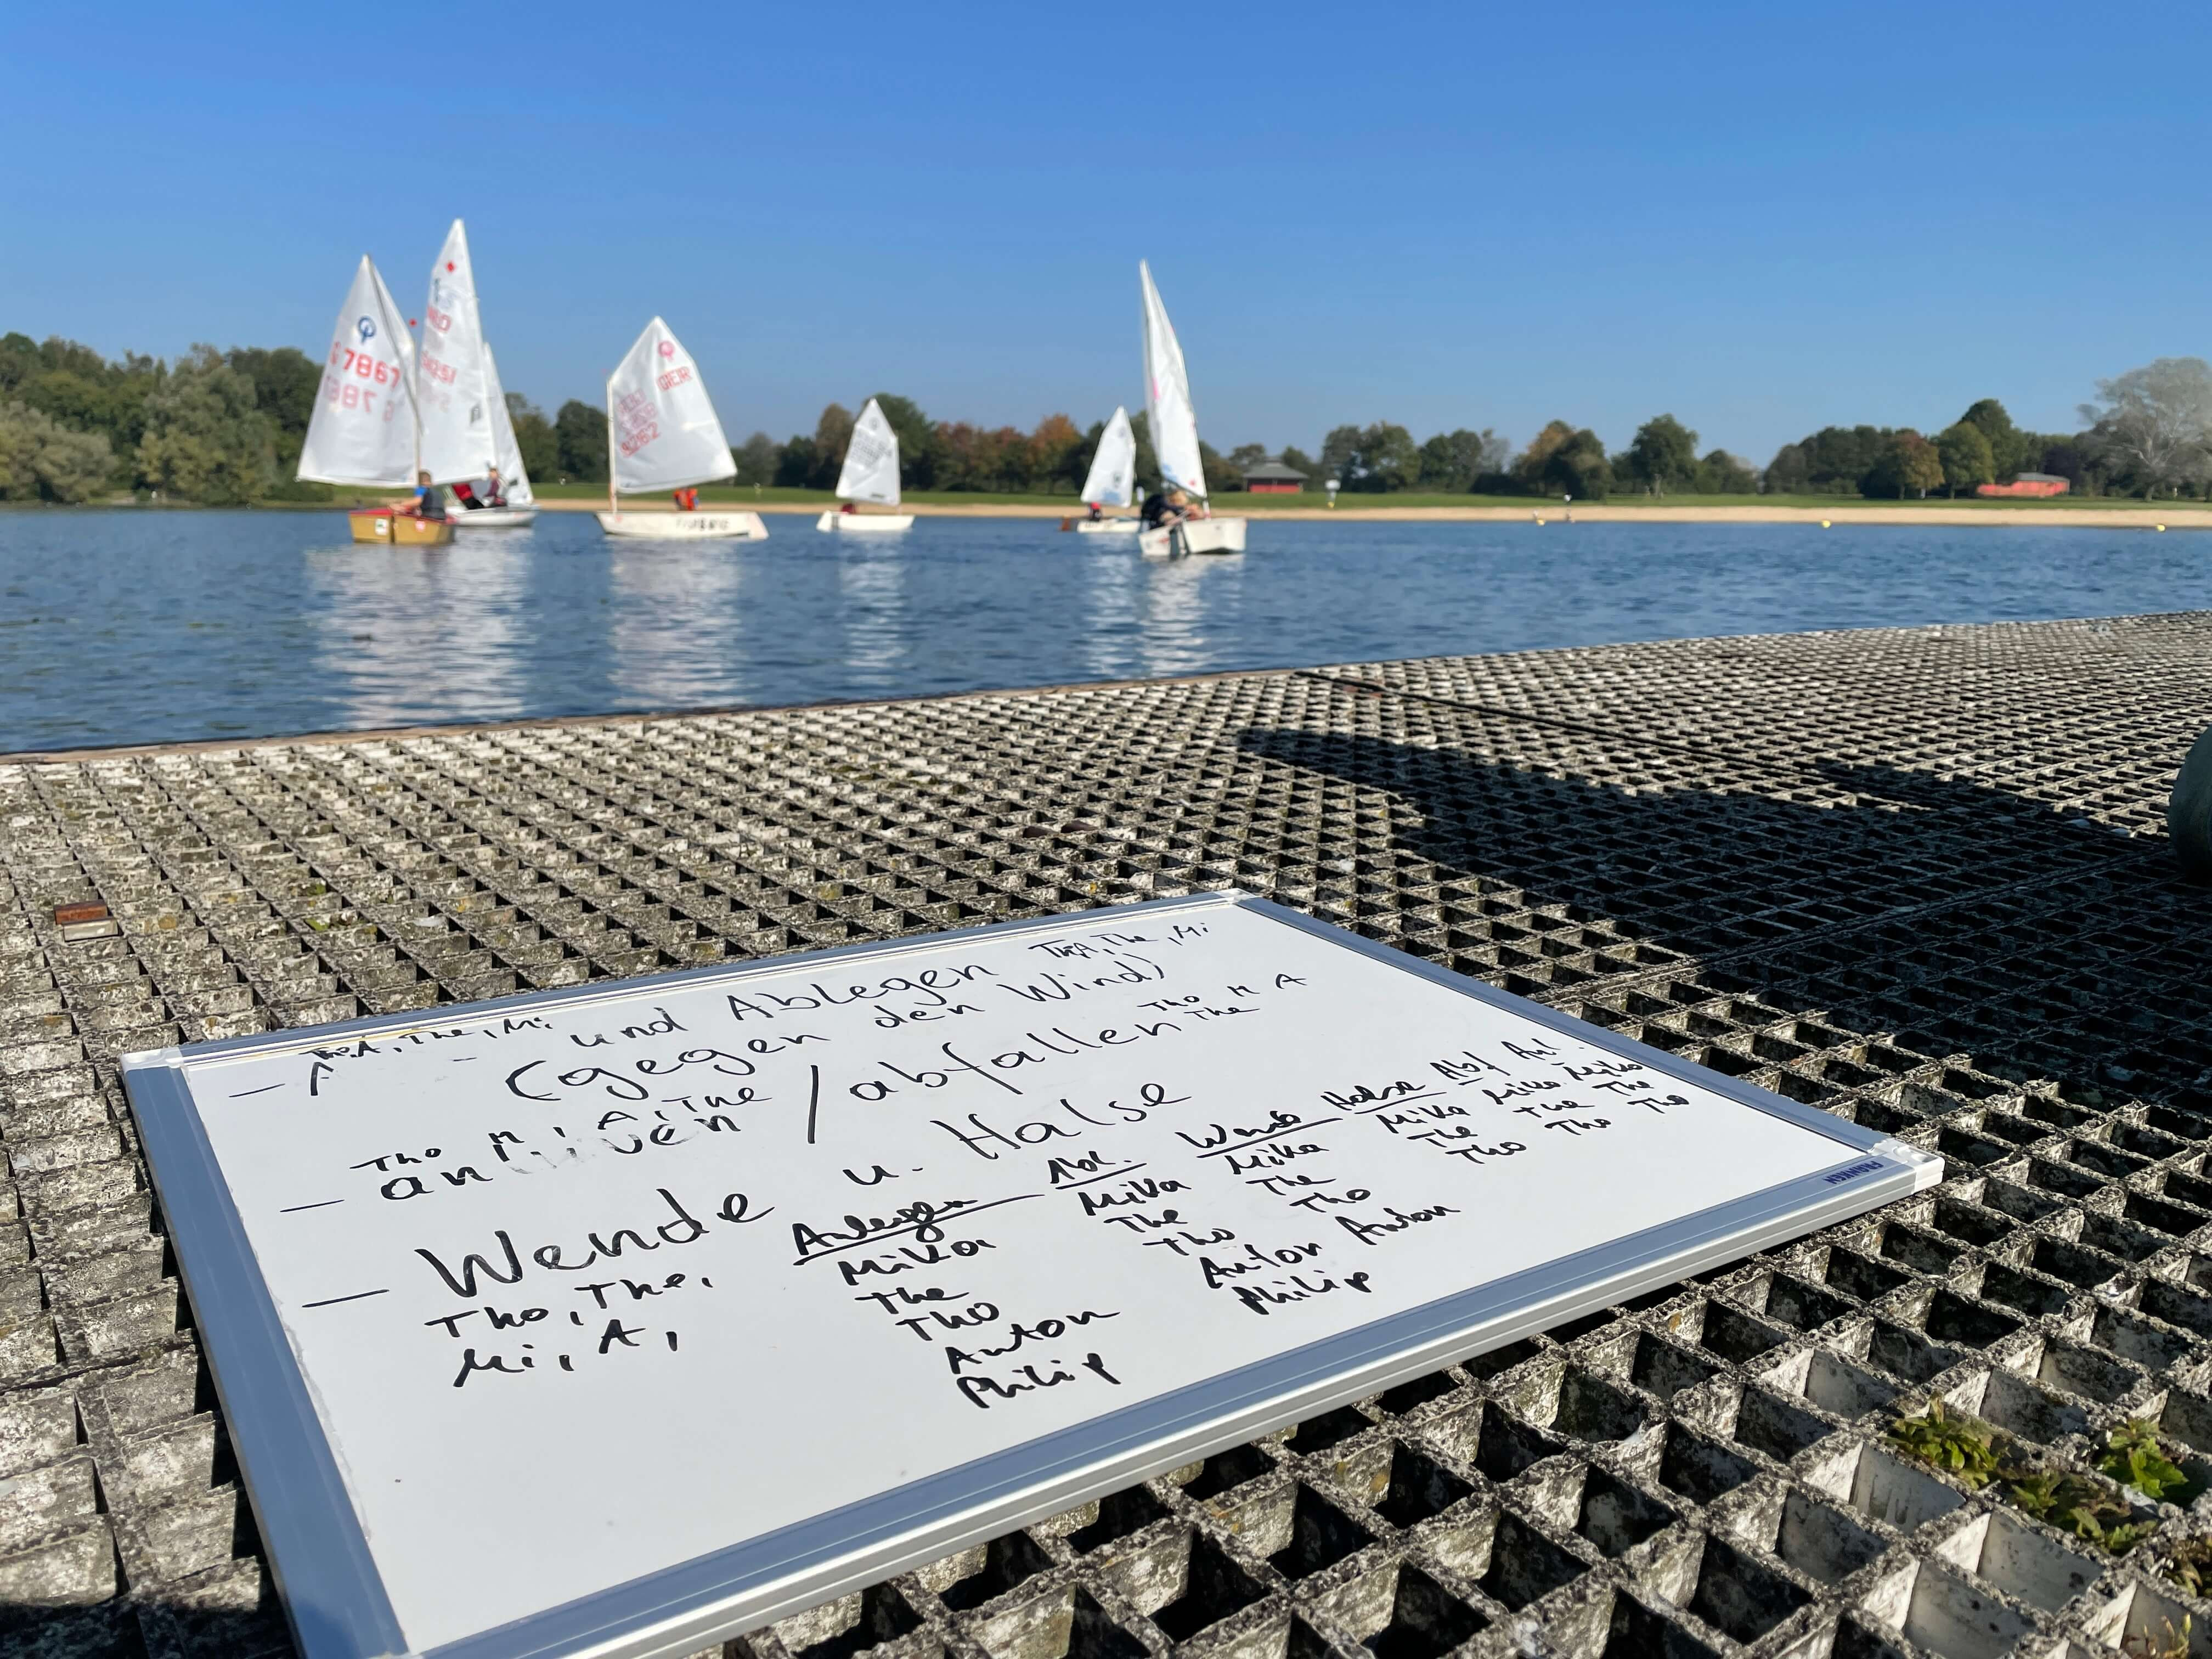 7867
GER
The, Mi
- und Ablegen The, Mi
(gegen den Wind)
Tho M, A, The
- / abfallen Tho The M A
- Wende u. Halse
Tho, The,
Mi, A,
Anlegen Abl. Wende Halse Abf Anl.
Mika Mika Mika Mika Mika
The The The The The The
Tho Tho Tho Tho Tho Tho
Anton Anton Anton
Philip Philip
FRANKEN